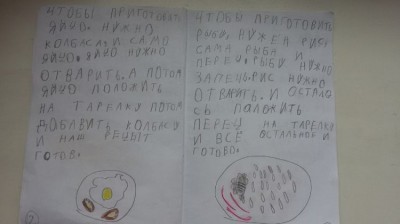 ЧТОБЫ ПРИГОТОВИТЬ
ЯЙЦО. НУЖНО
КОЛБАСА. И САМО
ЯЙЦО. ЯЙЦО НУЖНО
ОТВАРИТЬ. А ПОТОМ
ЯЙЦО ПОЛОЖИТЬ
НА ТАРЕЛКУ ПОТОМ
ДОБАВИТЬ КОЛБАСУ
И НАШ РЕЦЫПТ
ГОТОВ.
2
ЧТОБЫ ПРИГОТОВИТЬ
РЫБУ, НУЖЕН РИС,
САМА РЫБА И
ПЕРЕЦ. РЫБУ НУЖНО
ЗАПЕЧЬ. РИС НУЖНО
ОТВАРИТЬ. И ОСТАЛО
СЬ ПОЛОЖИТЬ
ПЕРЕЦ НА ТАРЕЛКУ
И ВСЁ ОСТАЛЬНОЕ И
ГОТОВО.